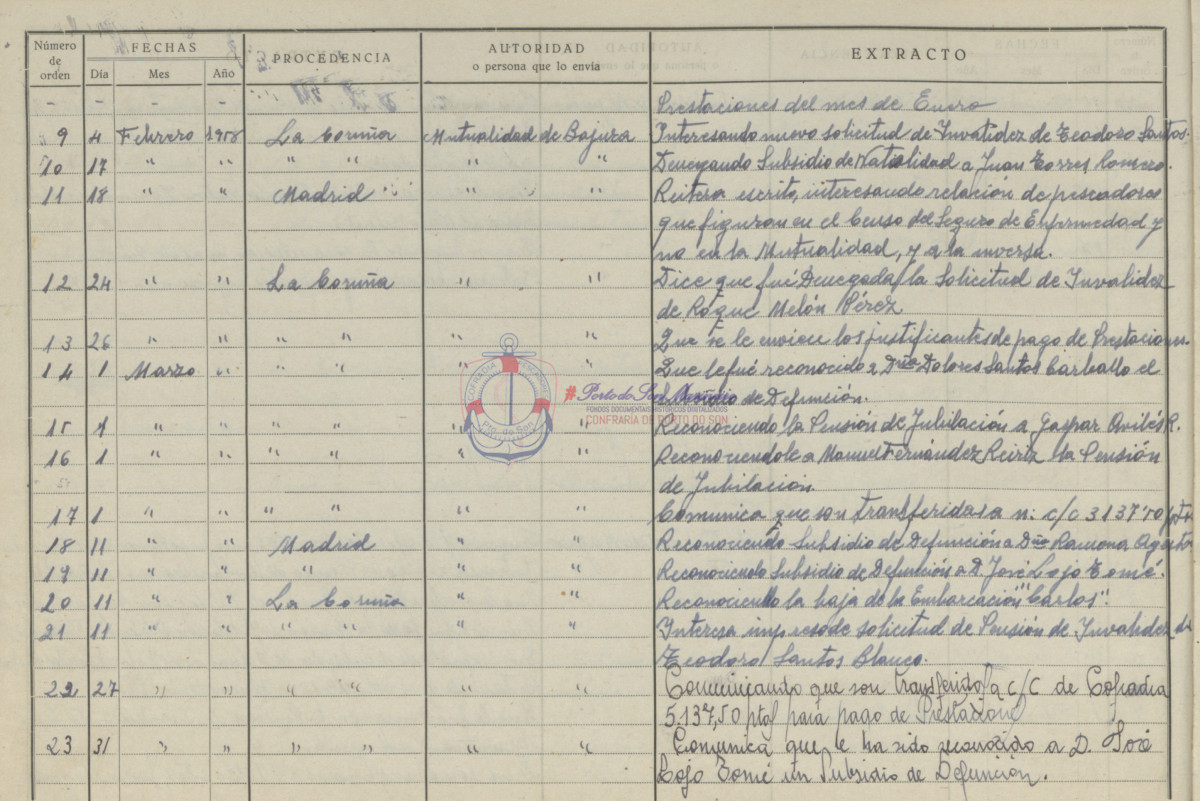 Número de orden FECHAS Día Mes Año PROCEDENCIA AUTORIDAD o persona que lo envía EXTRACTO
- - - - Prestaciones del mes de Enero
9 4 Febrero 1958 La Coruña Mutualidad de Bajura Interesando nuevo solicitud de Invalidez de Teodoro Santos.
10 17 " " " " " " Denegando Subsidio de Natalidad a Juan Torres Romero.
11 18 " " Madrid " " " Reitera escrito, interesando relación de pescadores
que figuran en el Censo del Seguro de Enfermedad y
no en la Mutualidad, y a la inversa.
12 24 " " La Coruña " " Dice que fué Denegada la Solicitud de Invalidez
de Roque Melón Pérez
13 26 " " " " " " Que se le envien los justificantes de pago de Prestaciones.
14 1 Marzo " " " " " Que le fué reconocido a Dña Dolores Santos Carballo el
Subsidio de Defunción.
15 1 " " " " " " Reconociendo la Pensión de Jubilación a Gaspar Avilés R.
16 1 " " " " " " Reconociendole a Manuel Fernández Reiriz la Pensión
de Jubilación.
17 1 " " " " " " Comunica que son transferidas a n: c/c 3137'50 pts
18 11 " " Madrid " " Reconociendo Subsidio de Defunción a Dña Ramona Agesto
19 11 " " " " " Reconociendo Subsidio de Defunción a D. José Lojo Tomé.
20 11 " " La Coruña " " Reconociendo la baja de la Embarcación "Carlos".
21 11 " " " " " " Interesa impreso de solicitud de Pensión de Invalidez de
Teodoro Santos Blanco.
22 27 " " " " " " Comunicando que son transferido a c/c de Cofradia
5.137,50 ptas para pago de Prestacione
23 31 " " " " " " Comunica que le ha sido reconocido a D. José
Lojo Tomé un Subsidio de Defunción.
COFRADIA PESCADORES
Pto. do Son
#Porto do Son
FONDOS DOCUMENTAIS HISTÓRICOS DIGITALIZADOS
CONFRARÍA DE PORTO DO SON